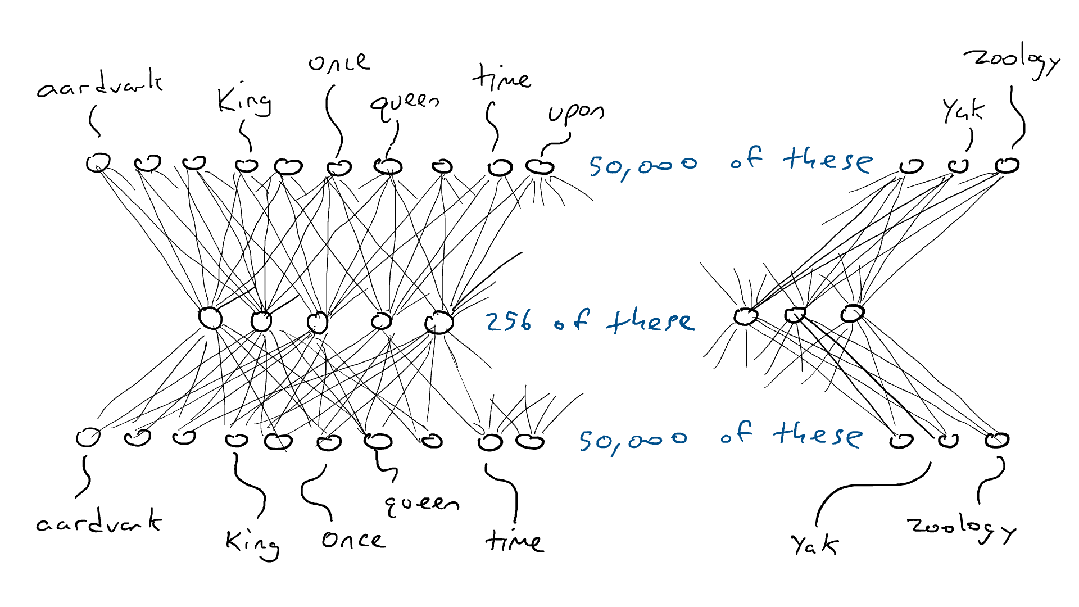 aardvark
King
once
queen
time
upon
50,000 of these
Yak
zoology
256 of these
50,000 of these
aardvark
King
once
queen
time
Yak
zoology